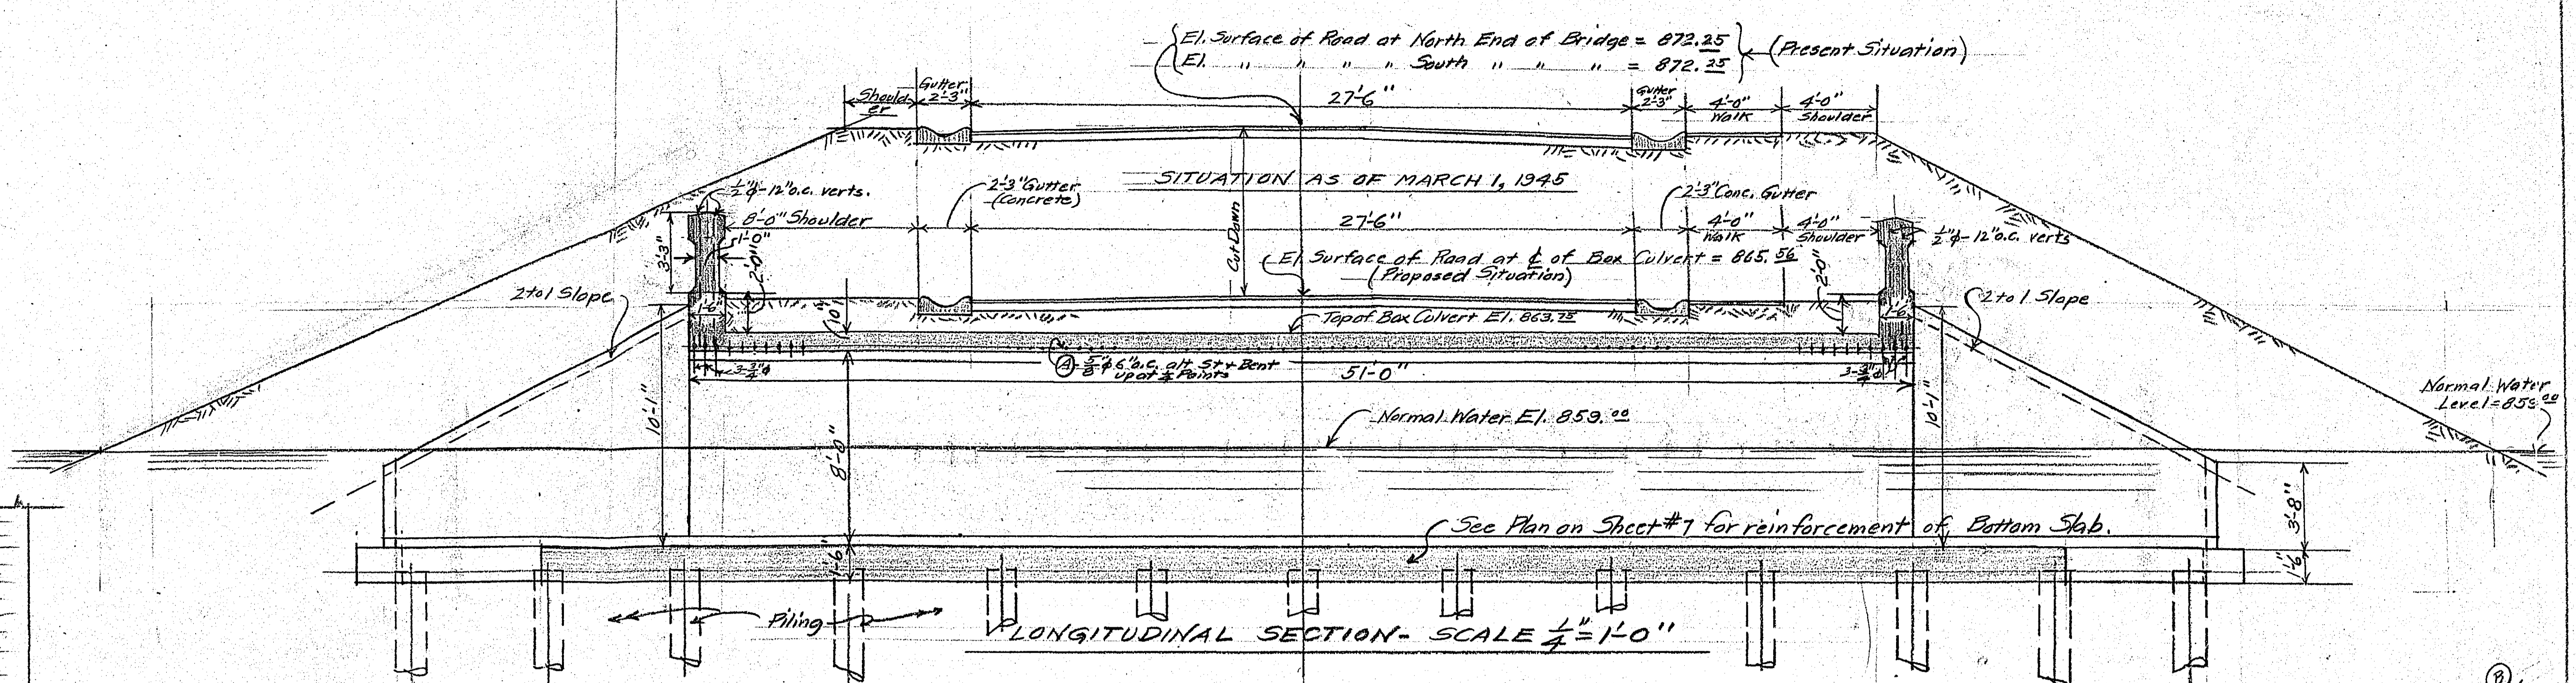 El. Surface of Road at North End of Bridge = 872.25
El. " " " " South " " " = 872.25
(Present Situation)
Should-
er
Gutter
2'-3"
27'-6"
Gutter
2'-3"
4'-0"
Walk
4'-0"
Shoulder
SITUATION AS OF MARCH 1, 1945
1/2"φ-12"o.c. verts.
8'-0" Shoulder
2'-3" Gutter
(Concrete)
Cut Down
27'-6"
2'-3" Conc. Gutter
4'-0"
Walk
4'-0"
Shoulder
1/2"φ-12"o.c. verts
3'-3"
1'-0"
2'-0"
El. Surface of Road at ℄ of Box Culvert = 865.56
(Proposed Situation)
2'-0"
2 to 1 Slope
1'-6"
10"
Top of Box Culvert El. 863.75
1'-6"
2 to 1 Slope
3-3/4"φ
Ⓐ-5/8"φ 6"o.c. alt. St + Bent
up at 1/4 Points
51'-0"
3-3/4"φ
10'-1"
8'-0"
Normal Water El. 859.00
10'-1"
Normal Water
Level = 859.00
See Plan on Sheet #7 for reinforcement of Bottom Slab.
3'-8"
1'-6"
1'-6"
Piling
LONGITUDINAL SECTION - SCALE 1/4" = 1'-0"
Ⓑ